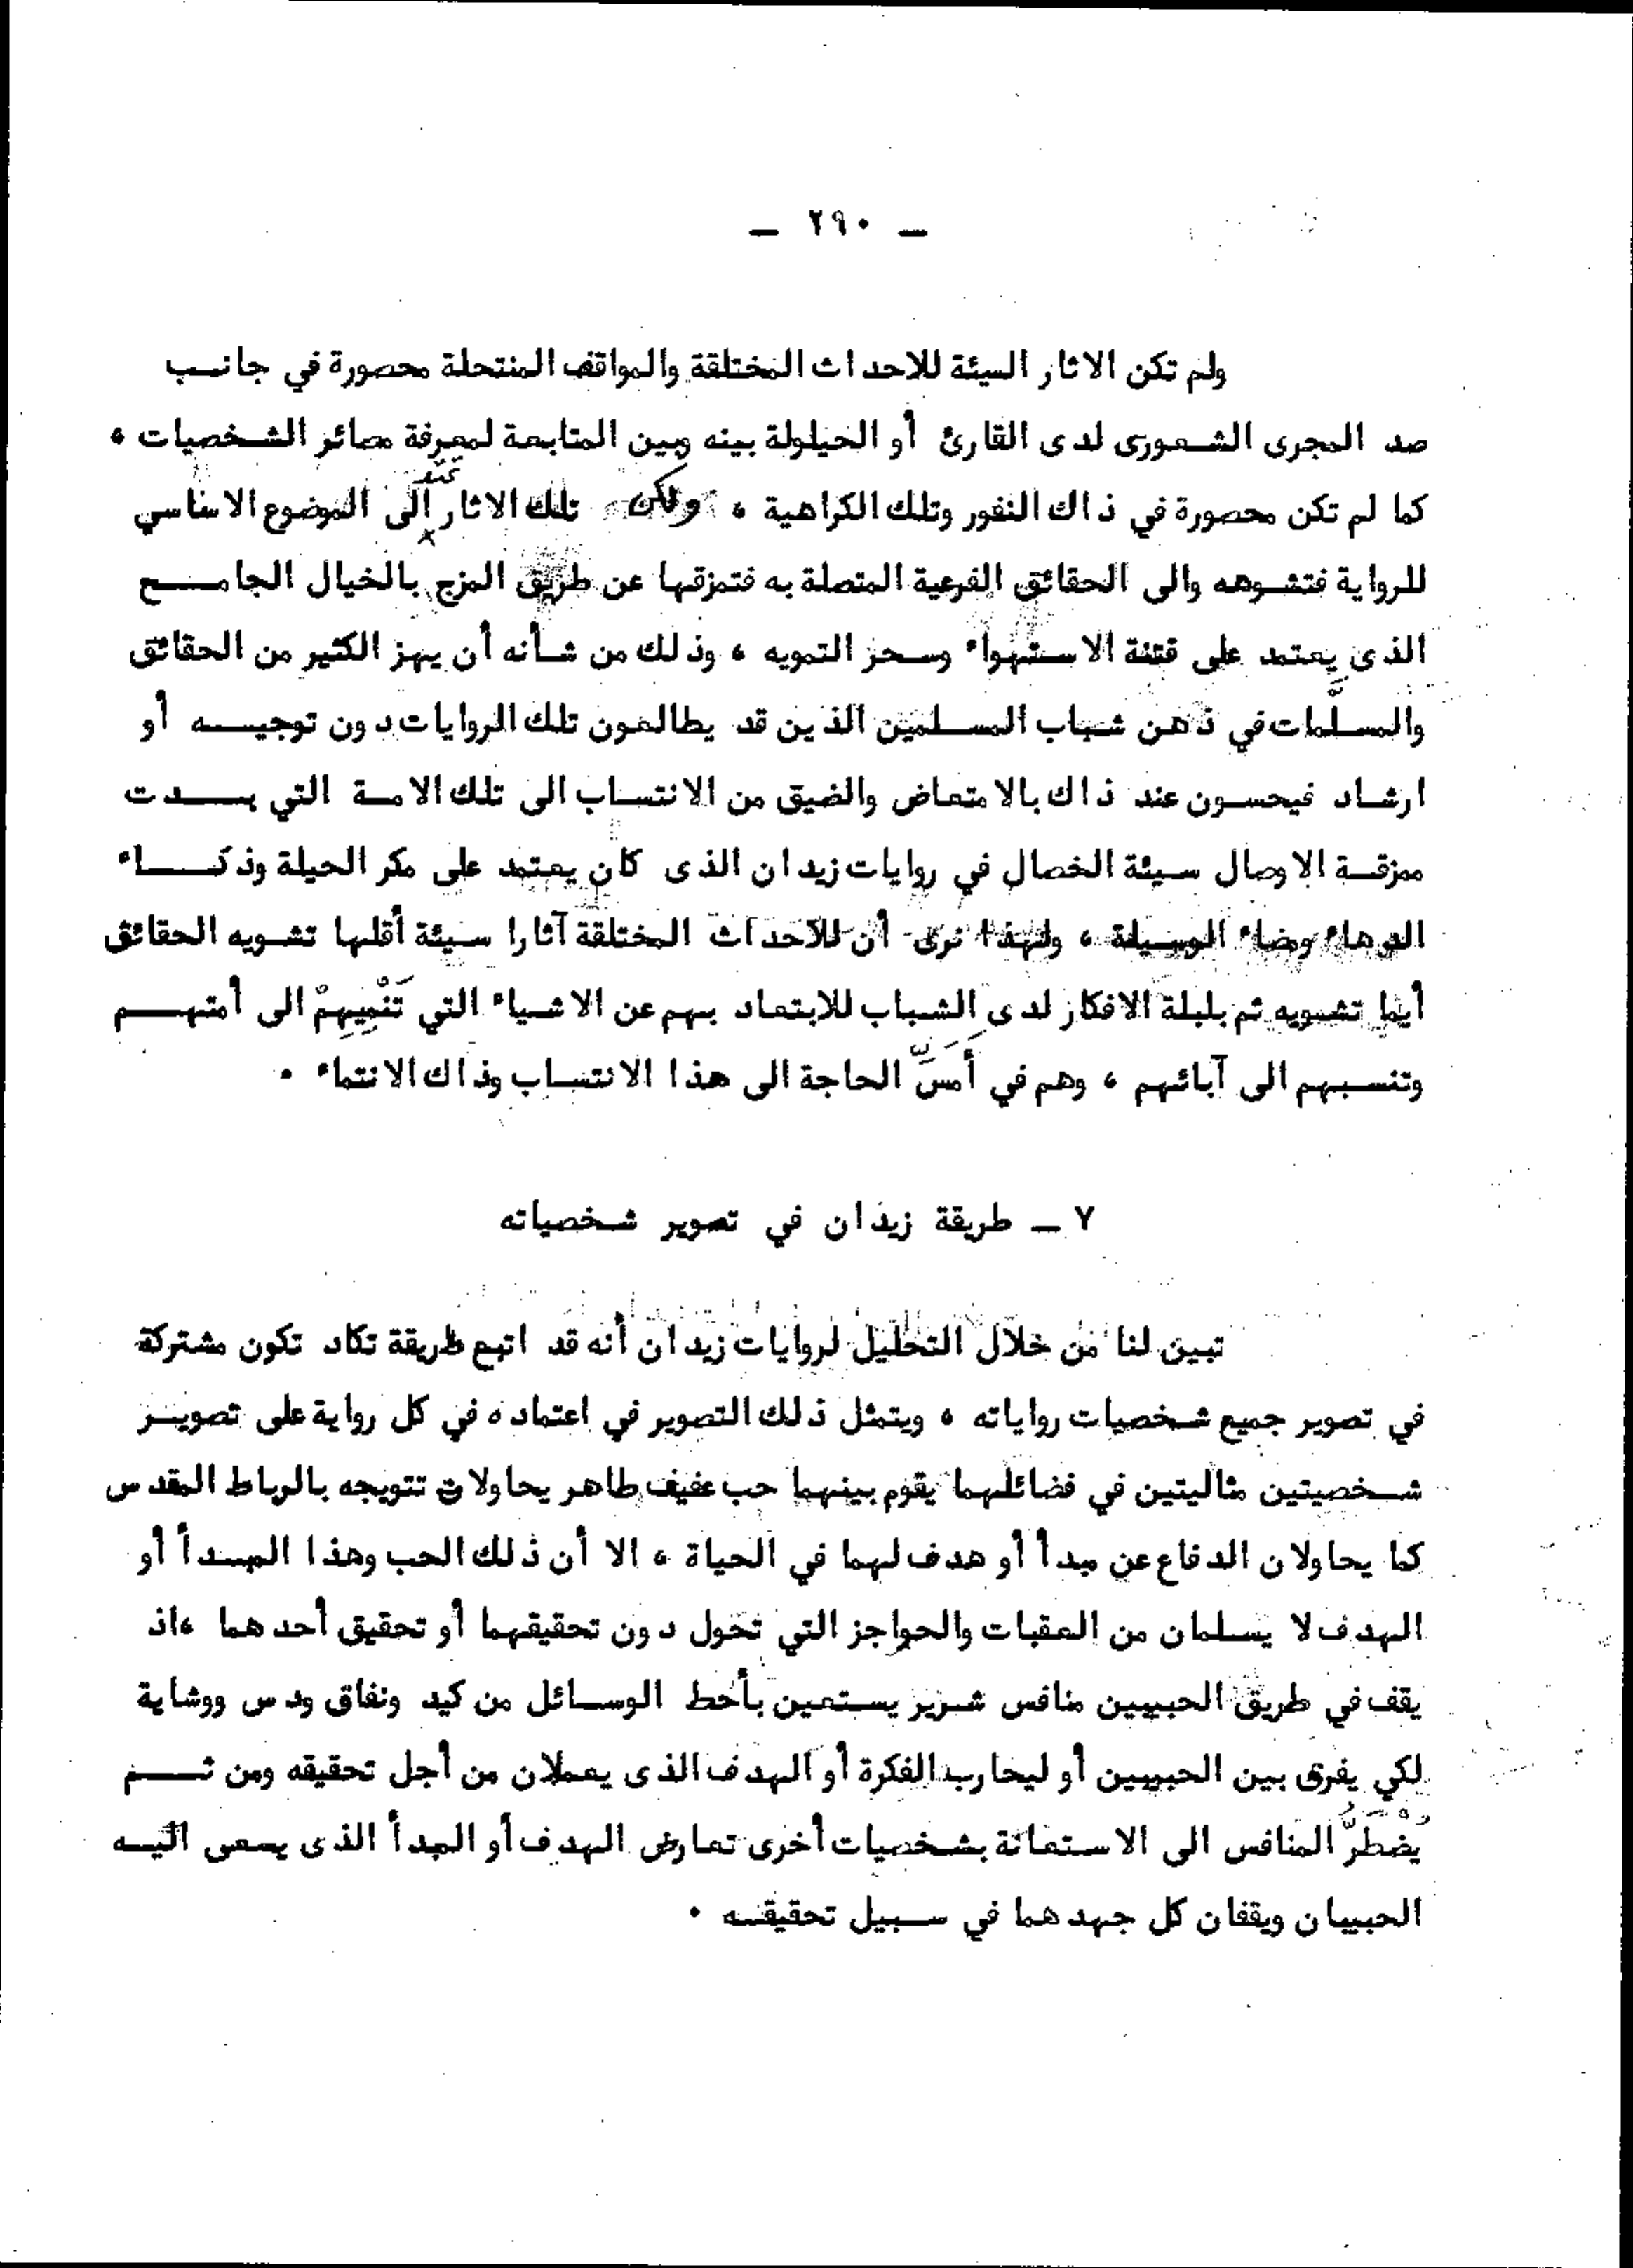 — ٢٩٠ —
ولم تكن الاثار السيئة للاحداث المختلقة والمواقف المنتحلة محصورة في جانب
صد المجرى الشعورى لدى القارئ أو الحيلولة بينه وبين المتابعة لمعرفة مصائر الشخصيات ،
كما لم تكن محصورة في ذاك النفور وتلك الكراهية ، ولكن تلك الاثار تمتد الى الموضوع الاساسي
للرواية فتشوهه والى الحقائق الفرعية المتصلة به فتمزقها عن طريق المزج بالخيال الجامح
الذى يعتمد على فتنة الاستهواء وسحر التمويه ، وذلك من شأنه أن يهز الكثير من الحقائق
والمسلَّمات في ذهن شباب المسلمين الذين قد يطالعون تلك الروايات دون توجيه أو
ارشاد فيحسون عند ذاك بالامتعاض والضيق من الانتساب الى تلك الامة التي بدت
ممزقة الاوصال سيئة الخصال في روايات زيدان الذى كان يعتمد على مكر الحيلة وذكاء
الدهاء ومضاء الوسيلة ، ولهذا نرى أن للآحداث المختلقة آثارا سيئة أقلها تشويه الحقائق
أيما تشويه ثم بلبلة الافكار لدى الشباب للابتعاد بهم عن الاشياء التي تَنْمِيهِمْ الى أمتهم
وتنسبهم الى آبائهم ، وهم في أَمَسِّ الحاجة الى هذا الانتساب وذاك الانتماء .
٧ — طريقة زيدان في تصوير شخصياته
تبين لنا من خلال التحليل لروايات زيدان أنه قد اتبع طريقة تكاد تكون مشتركة
في تصوير جميع شخصيات رواياته ، ويتمثل ذلك التصوير في اعتماده في كل رواية على تصوير
شخصيتين مثاليتين في فضائلهما يقوم بينهما حب عفيف طاهر يحاولان تتويجه بالرباط المقدس
كما يحاولان الدفاع عن مبدأ أو هدف لهما في الحياة ، الا أن ذلك الحب وهذا المبدأ أو
الهدف لا يسلمان من العقبات والحواجز التي تحول دون تحقيقهما أو تحقيق أحدهما ،اذ
يقف في طريق الحبيبين منافس شرير يستعين بأحط الوسائل من كيد ونفاق ودس ووشاية
لكي يفرق بين الحبيبين أو ليحارب الفكرة أو الهدف الذى يعملان من أجل تحقيقه ومن ثم
يُضْطَرُّ المنافس الى الاستعانة بشخصيات أخرى تعارض الهدف أو المبدأ الذى يسعى اليه
الحبيبان ويقفان كل جهدهما في سبيل تحقيقه .